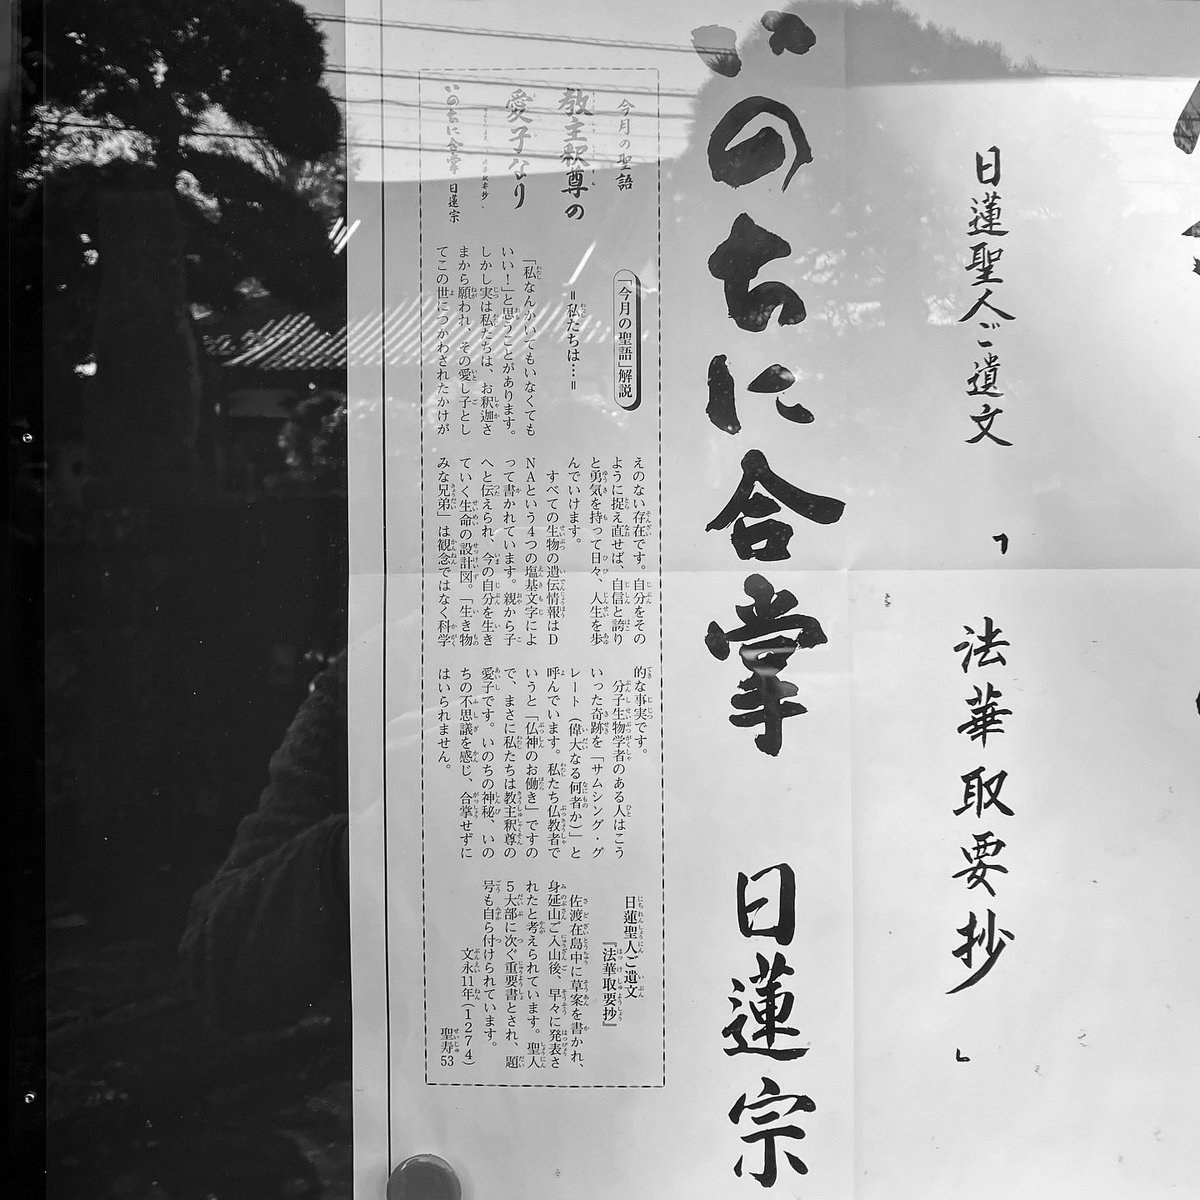 日蓮聖人ご遺文
「法華取要抄」
いのちに合掌 日蓮宗
今月の聖語
教主釈尊の
愛子なり
いのちに合掌 日蓮宗
「今月の聖語」解説
=私たちは…=
「私なんかいてもいなくても
いい!」と思うことがあります。
しかし実は私たちは、お釈迦さ
まから願われ、その愛し子とし
てこの世につかわされたかけが
えのない存在です。自分をその
ように捉え直せば、自信と誇り
と勇気を持って日々、人生を歩
んでいけます。
すべての生物の遺伝情報はD
NAという4つの塩基文字によ
って書かれています。親から子
へと伝えられ、今の自分を生き
ていく生命の設計図。「生き物
みな兄弟」は観念ではなく科学
的な事実です。
分子生物学者のある人はこう
いった奇跡を「サムシング・グ
レート(偉大なる何者か)」と
呼んでいます。私たち仏教者で
いうと「仏神のお働き」ですの
で、まさに私たちは教主釈尊の
愛子です。いのちの神秘、いの
ちの不思議を感じ、合掌せずに
はいられません。
日蓮聖人ご遺文
『法華取要抄』
佐渡在島中に草案を書かれ、
身延山ご入山後、早々に発表さ
れたと考えられています。聖人
5大部に次ぐ重要書とされ、題
号も自ら付けられています。
文永11年(1274)
聖寿53